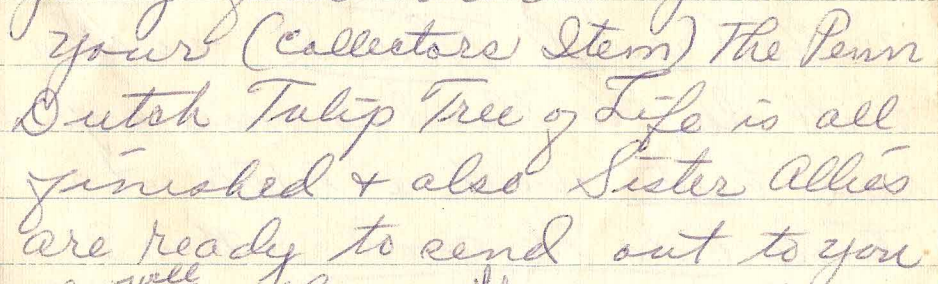 your (Collectors Item) The Penn
Dutch Tulip Tree of Life is all
finished & also Sister Allies
are ready to send out to you
will